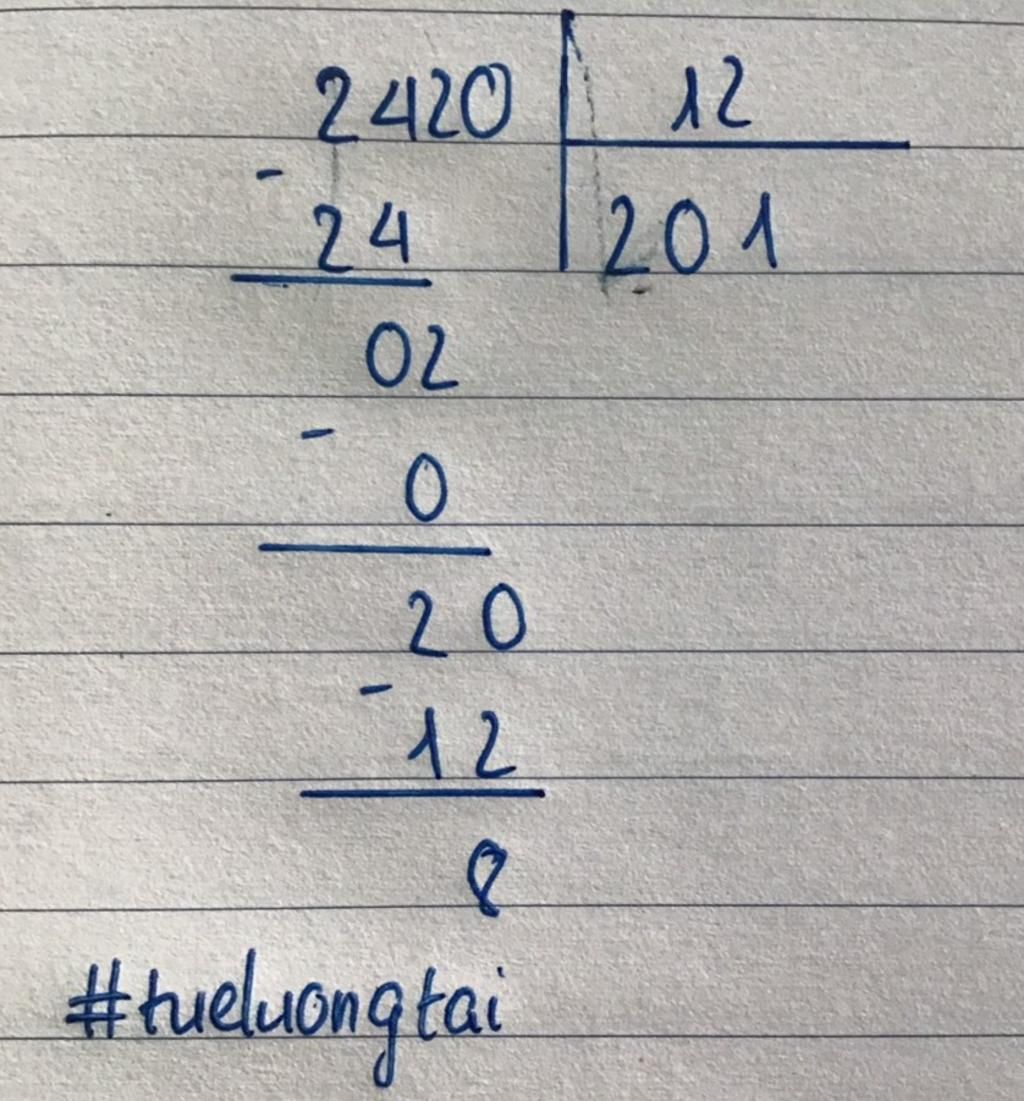 2420 12
-
24 201
02
-
0
20
-
12
8
#tueluongtai